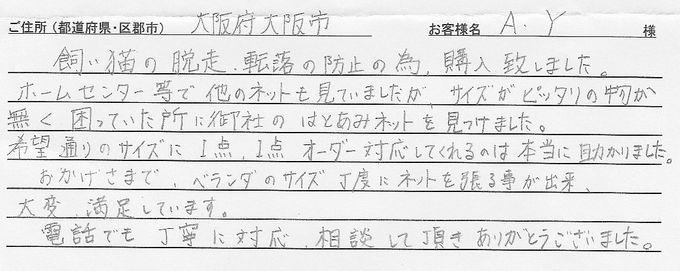 ご住所（都道府県・区郡市） 大阪府大阪市 お客様名 A.Y 様
飼い猫の脱走、転落の防止の為、購入致しました。
ホームセンター等で他のネットも見ていましたが、サイズがピッタリの物が
無く困っていた所に御社のはとあみネットを見つけました。
希望通りのサイズに1点、1点オーダー対応してくれるのは本当に助かりました。
おかげさまで、ベランダのサイズ丁度にネットを張る事が出来、
大変、満足しています。
電話でも丁寧に対応、相談して頂きありがとうございました。